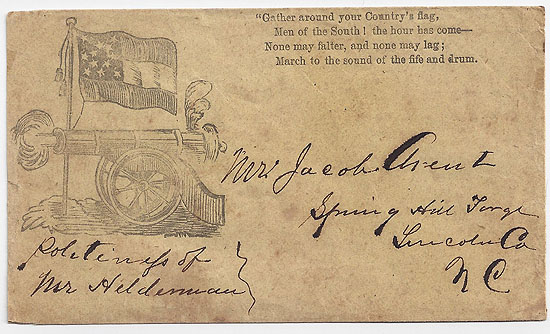 "Gather around your Country's flag,
Men of the South! the hour has come—
None may falter, and none may lag;
March to the sound of the fife and drum.
Mr Jacob Arent
Spring Hill Forge
Lincoln Co
N C
Politeness of
Mr Helderman